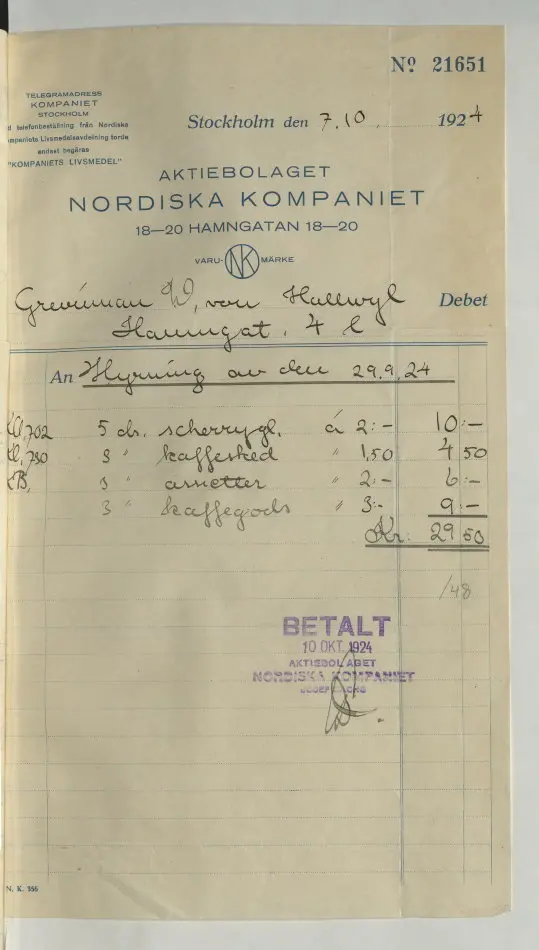 Nº 21651
TELEGRAMADRESS
KOMPANIET
STOCKHOLM
telefonbeställning från Nordiska
mpaniets Livsmedelsavdelning torde
endast begäras
"KOMPANIETS LIVSMEDEL"
Stockholm den 7.10. 1924
AKTIEBOLAGET
NORDISKA KOMPANIET
18—20 HAMNGATAN 18—20
VARU- NK MÄRKE
Grevinnan W. von Hallwyl Debet
Hamngat. 4
An Hyrning av den 29.9.24
702 5 ds. scherrygl. à 2:- 10:-
730 3 " kaffesked " 1,50 4 50
3 " assietter " 2:- 6:-
3 " kaffegods " 3:- 9:-
Kr: 29 50
/48
BETALT
10 OKT. 1924
AKTIEBOLAGET
NORDISKA KOMPANIET
N. K. 166